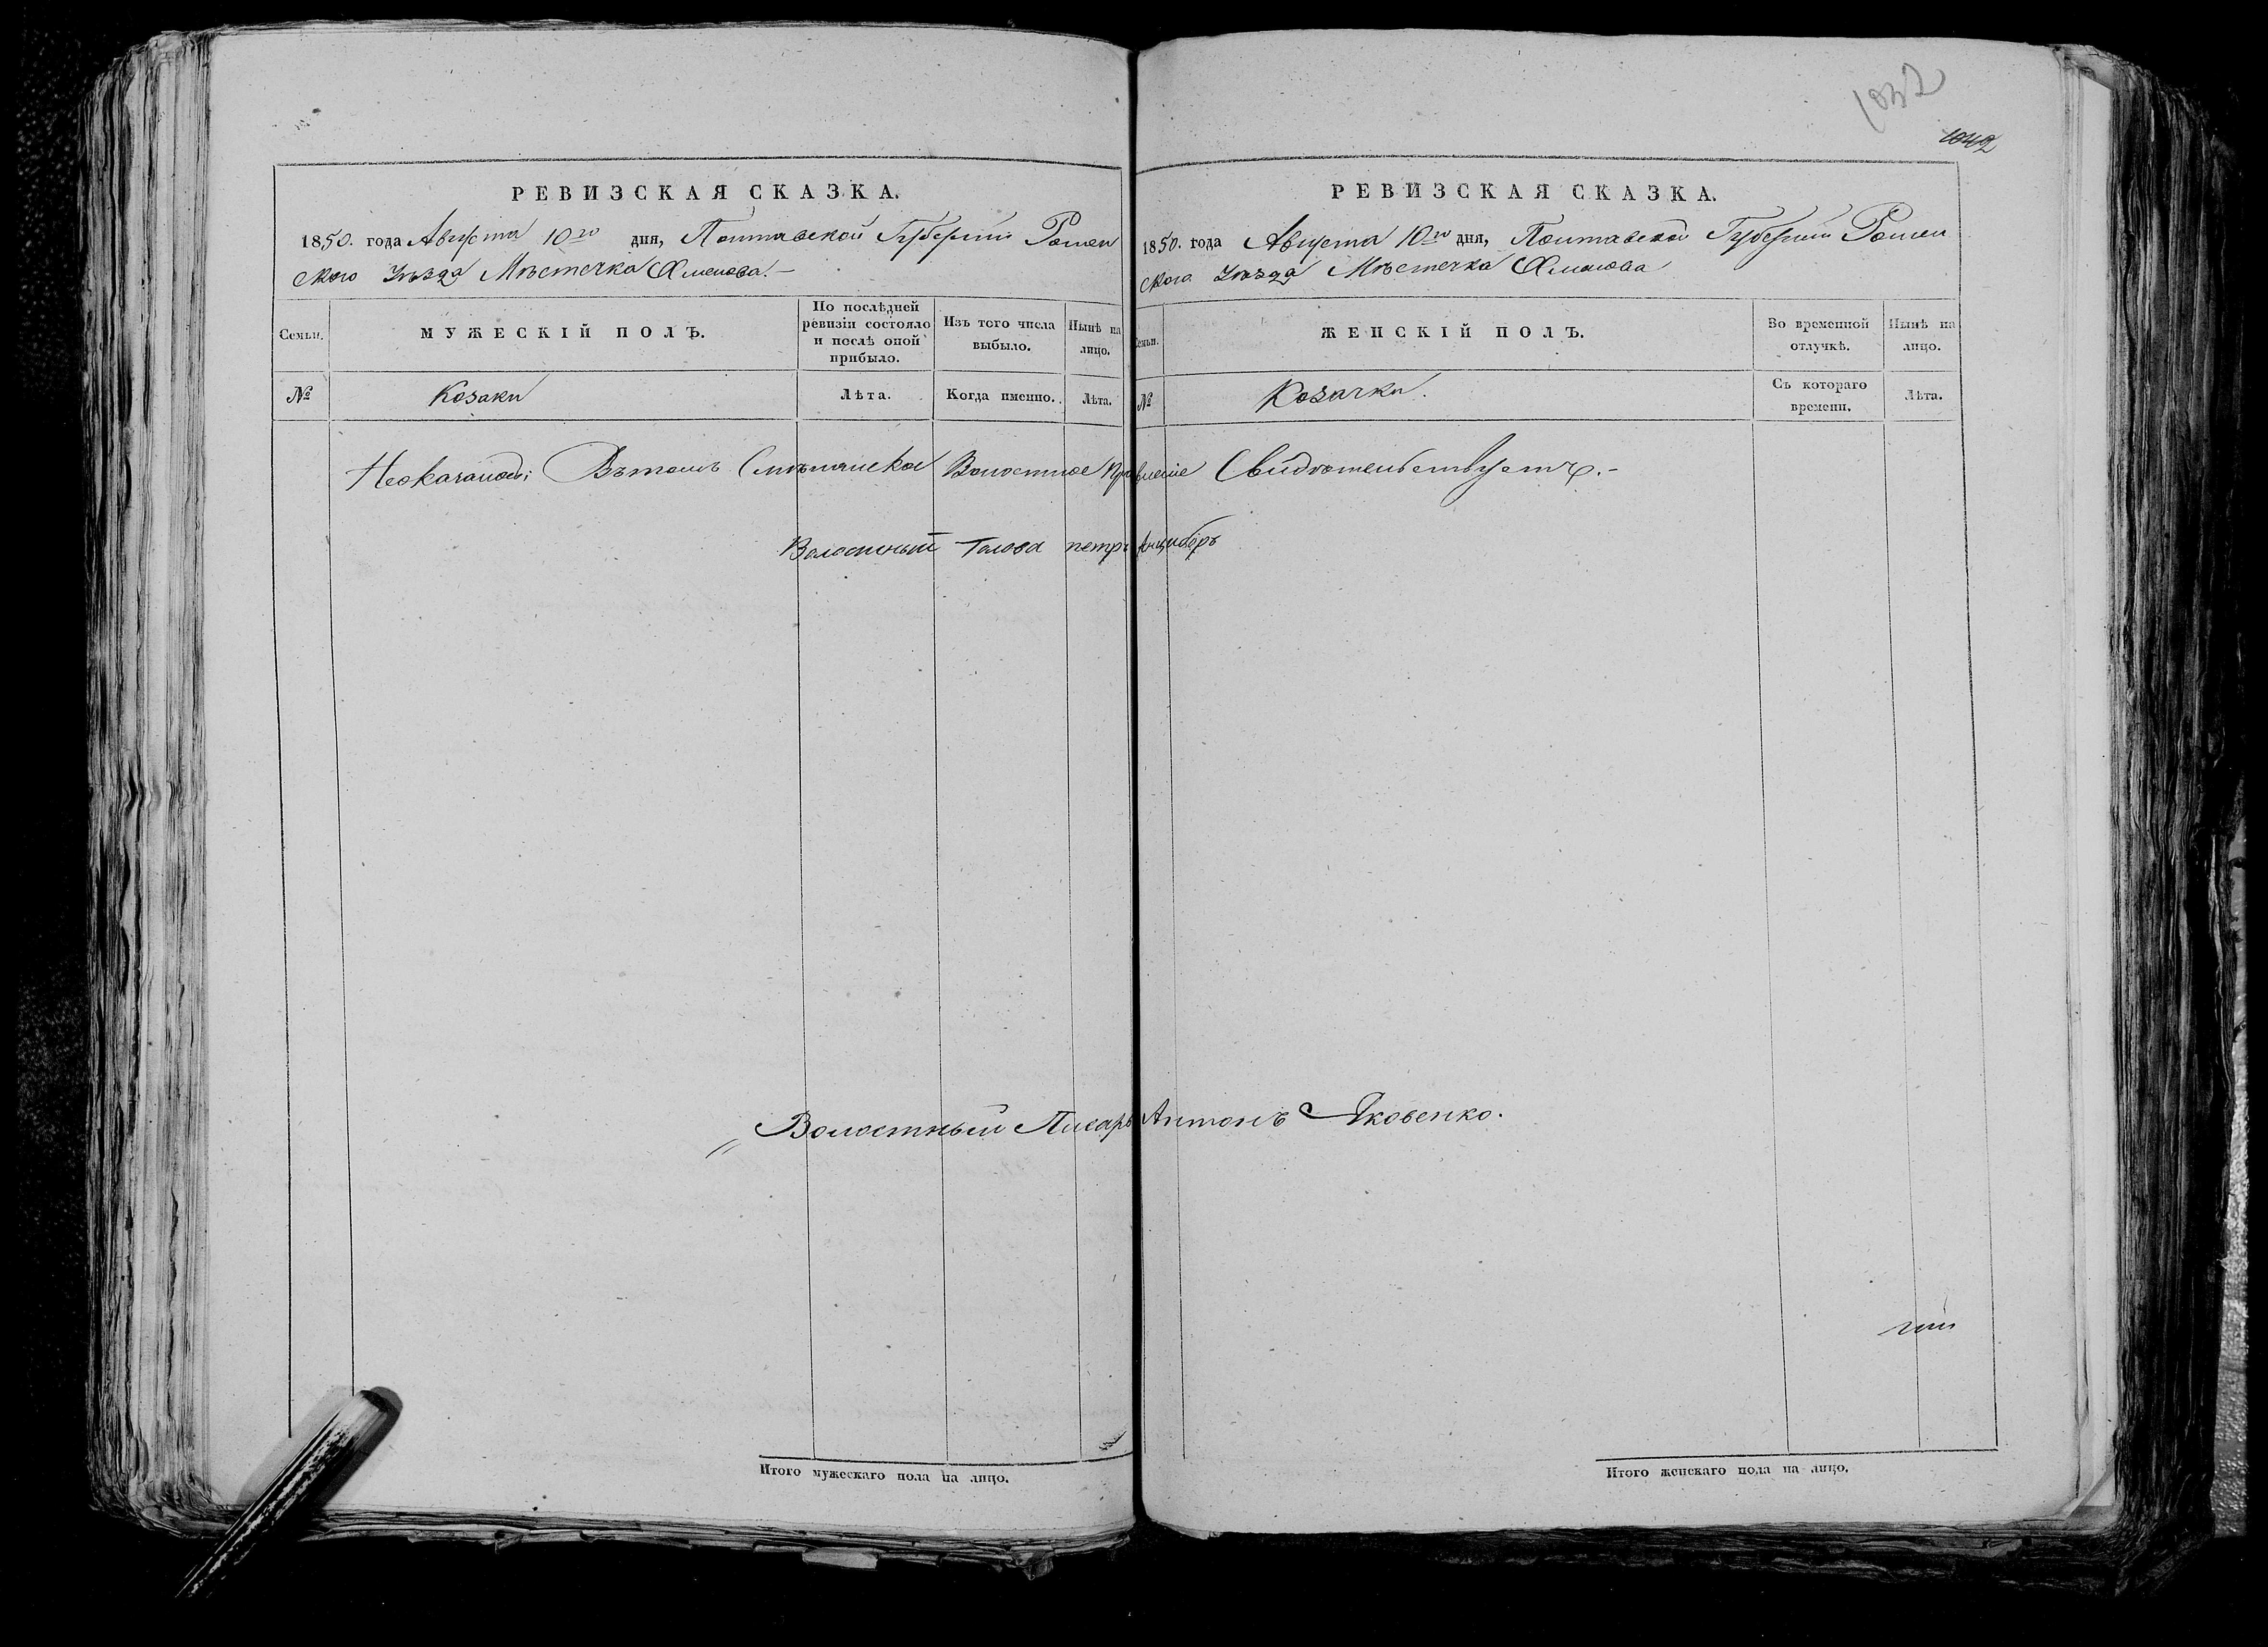 1032
1042
РЕВИЗСКАЯ СКАЗКА.
1850. года Августа 10го дня, Полтавской Губерніи Ромен
ского Уѣзда Мѣстечка Хмелова. –
Семьи.
МУЖЕСКІЙ ПОЛЪ.
По послѣдней
ревизіи состояло
и послѣ оной
прибыло.
Изъ того числа
выбыло.
Нынѣ на
лицо.
№
Козаки
Лѣта.
Когда именно.
Лѣта.
Въ томъ Волостное Правленіе Свидѣтельствуетъ. –
Волостный Голова петръ Анцыборъ
Волостный Писарь Антонъ Яковенко.
Итого мужескаго пола на лицо.
РЕВИЗСКАЯ СКАЗКА.
1850. года Августа 10го дня, Полтавской Губерніи Ромен
ского Уѣзда Мѣстечка Хмелова
Семьи.
ЖЕНСКІЙ ПОЛЪ.
Во временной
отлучкѣ.
Нынѣ на
лицо.
№
Козачки.
Съ котораго
времени.
Лѣта.
Итого женскаго пола на лицо.